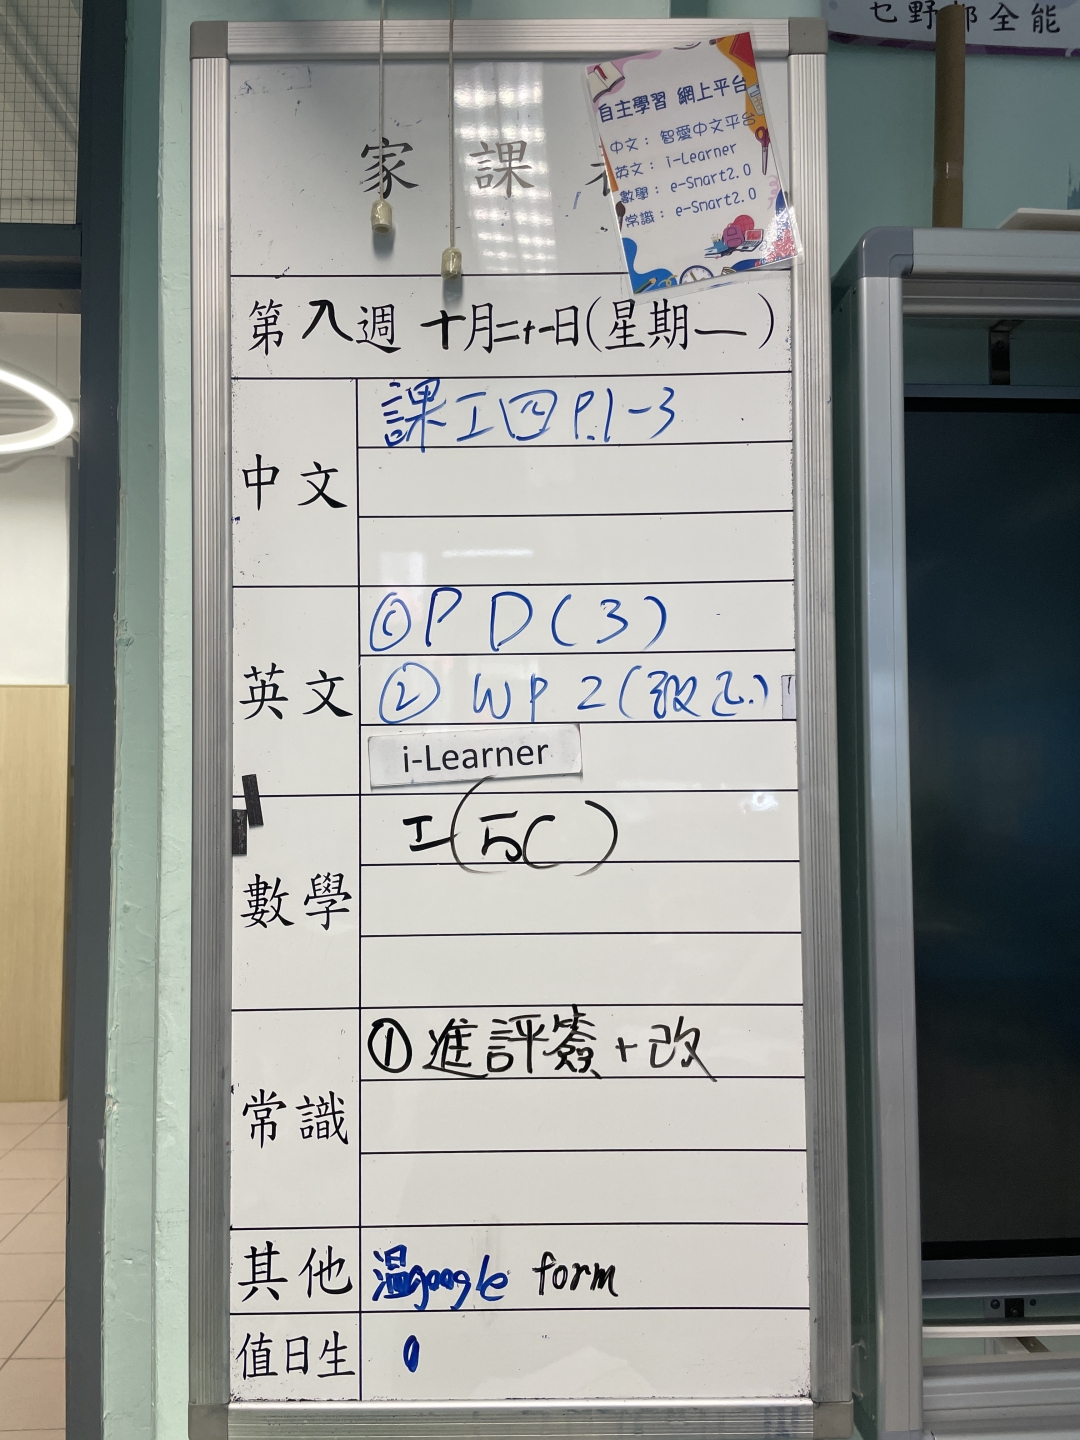 野都全能
自主學習 網上平台
中文： 智愛中文平台
英文： i-Learner
數學： e-Smart2.0
常識： e-Smart2.0
家 課
第八週 十月二十一日(星期一)
中文
課工四 P.1-3
英文
① P D (3)
② WP 2 (改正)
i-Learner
數學
工(5C)
常識
① 進評簽+改
其他
溫google form
值日生